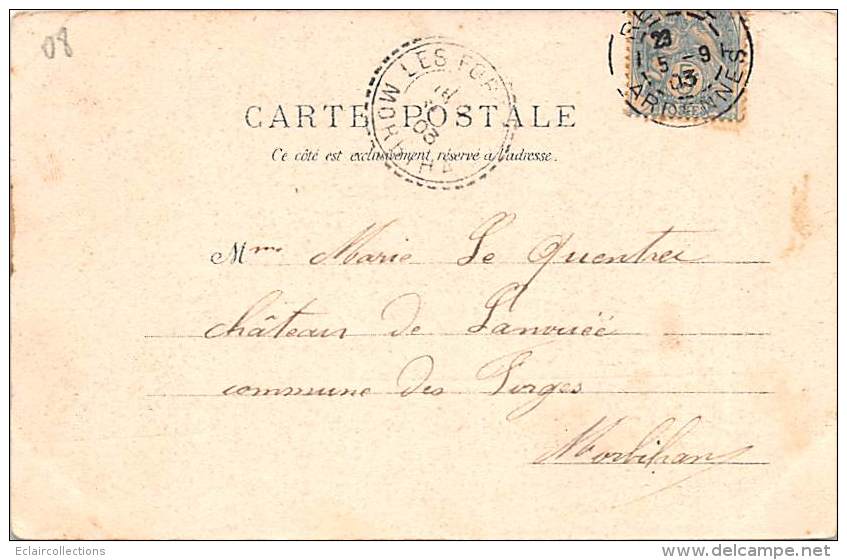 08
LES FOR
MORBIHA
03
RE
23
5 - 9
03
ARDENNES
CARTE POSTALE
Ce côté est exclusivement réservé à l'adresse.
Mme Marie Le Quentrec
château de Lanouée
commune des Forges
Morbihan
Eclaircollections
www.delcampe.net